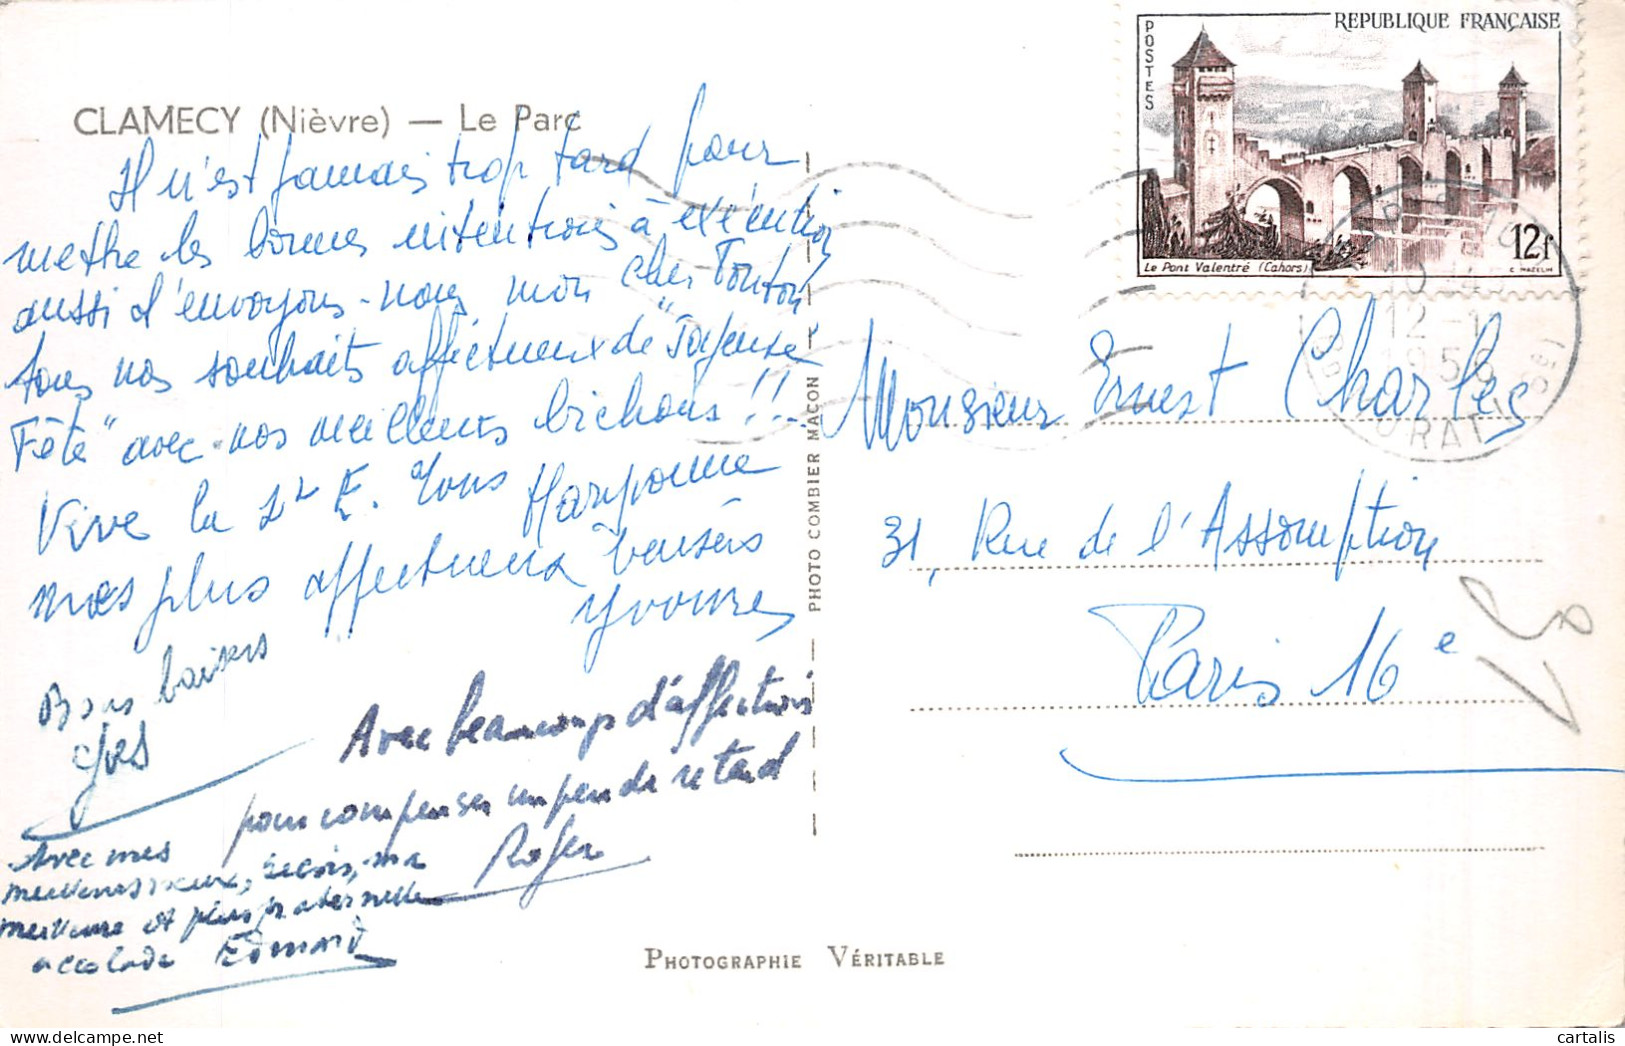 CLAMECY (Nièvre) — Le Parc
Il n'est jamais trop tard pour
mettre les bonnes intentions à exécution
aussi t'envoyons-nous mon cher Tonton
tous nos souhaits affectueux de "Joyeuse
Fête" avec nos meilleurs bichons!!..
Vive la St E. Tous
mes plus affectueux pensées
Yvonne
Bons baisers
Avec beaucoup d'affection
pour compenser un peu de retard
Roger
Avec mes
meilleurs vœux, reçois, ma
meilleure et plus fraternelle
accolade Edmard
PHOTO COMBIER MACON
PHOTOGRAPHIE VÉRITABLE
REPUBLIQUE FRANÇAISE
POSTES
Le Pont Valentré (Cahors)
12f
C. MAZELIN
PARIS 16
12-1
1956
Monsieur Ernest Charles
31, Rue de l'Assomption
Paris 16e
cartalis